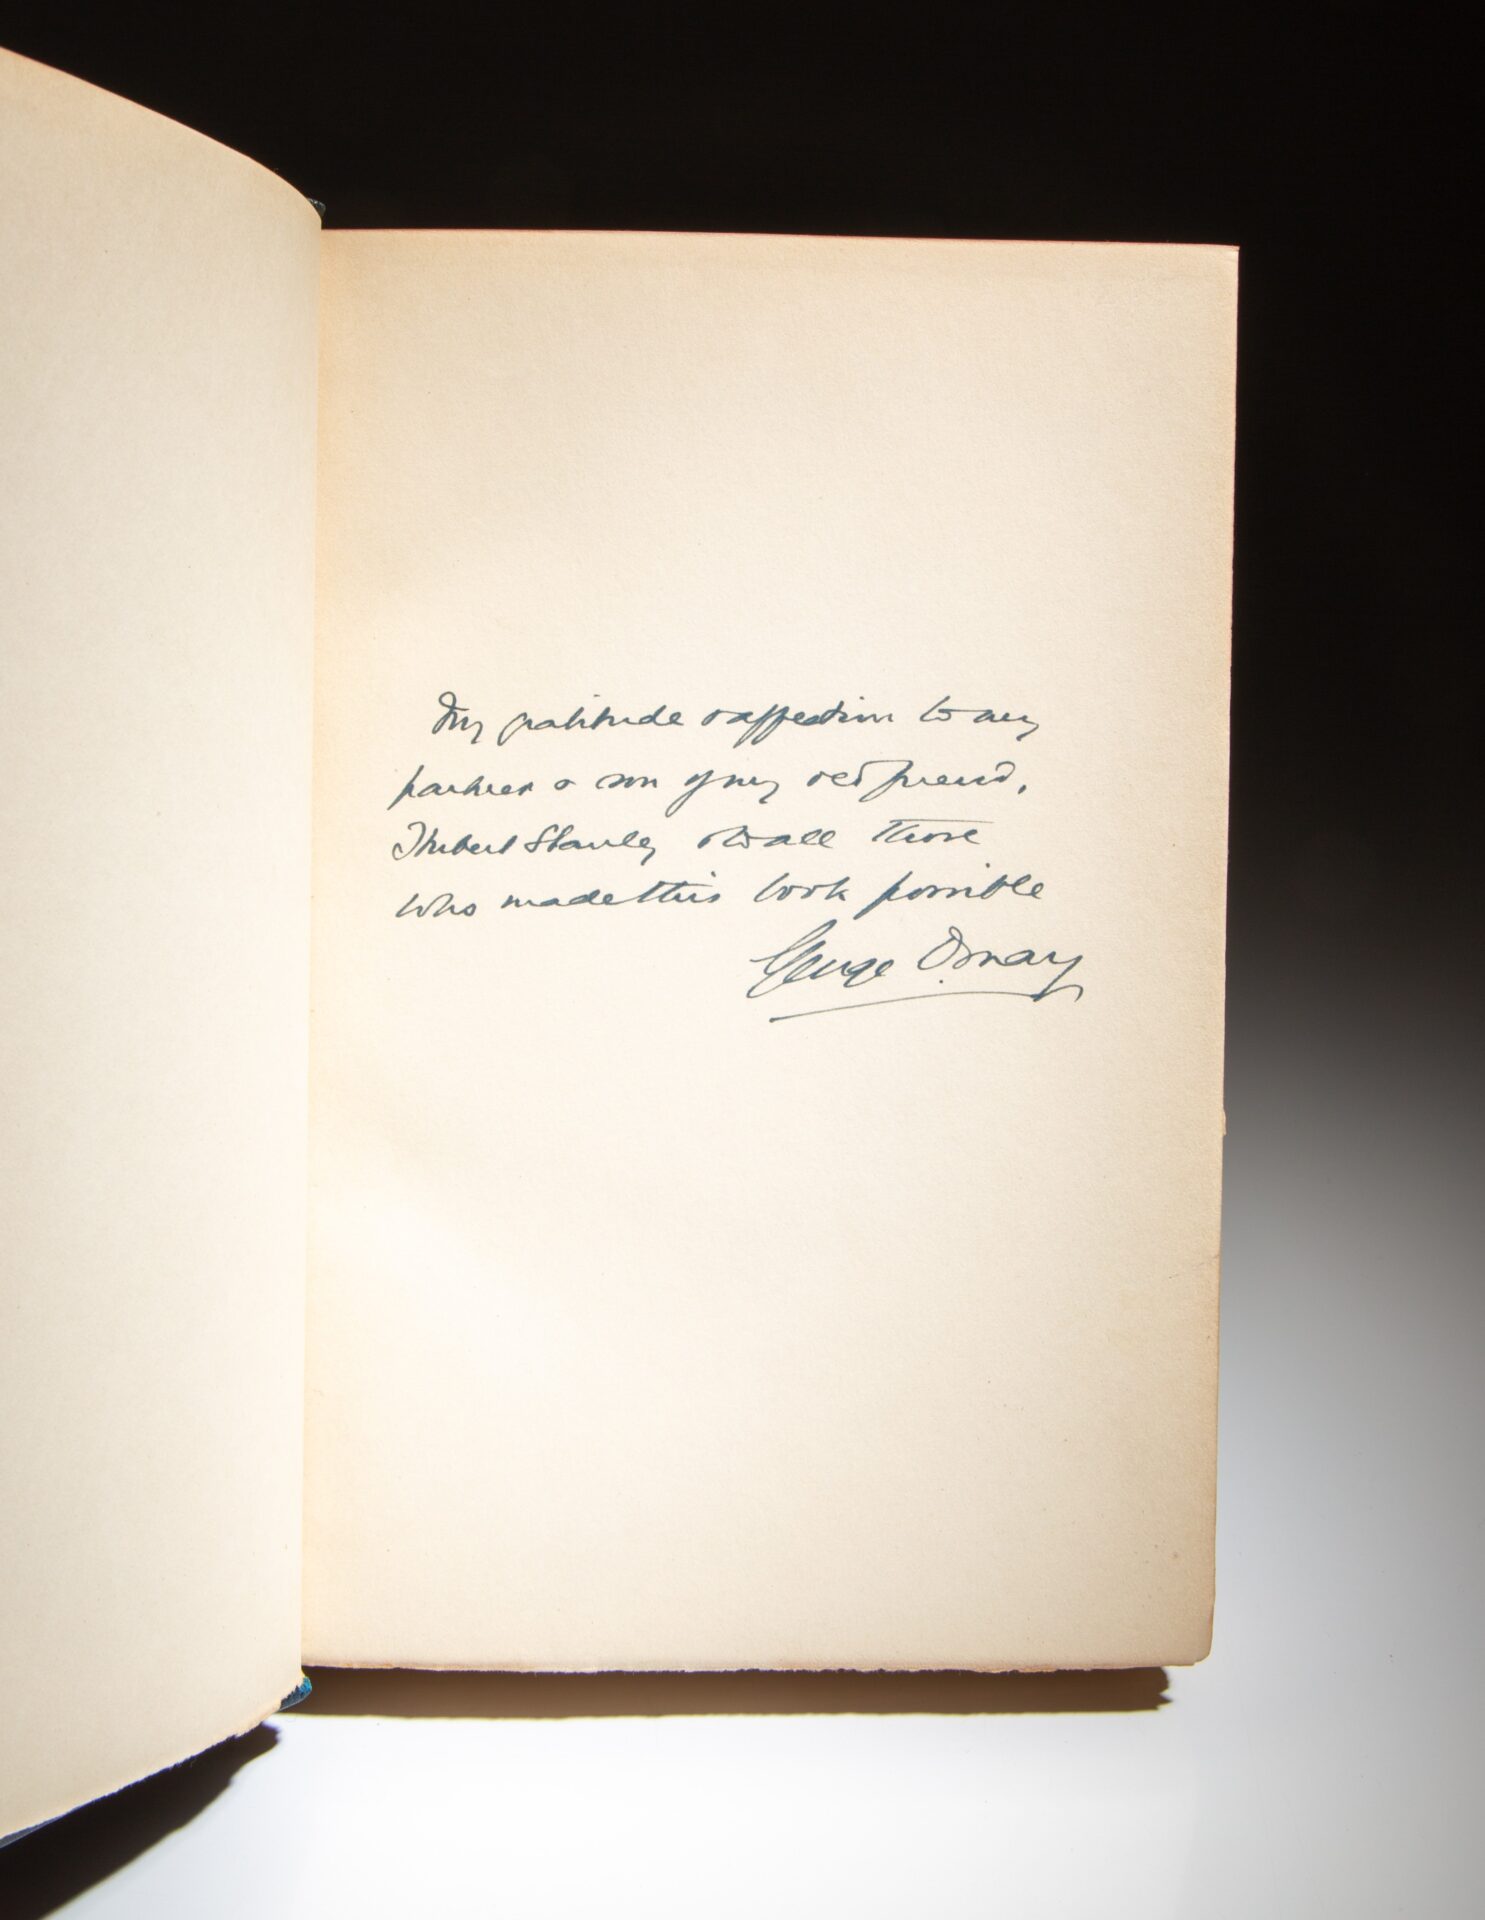 My gratitude & affection to my
partner & son of my old friend,
Hubert Stanley & to all those
who made this book possible
George Ornay